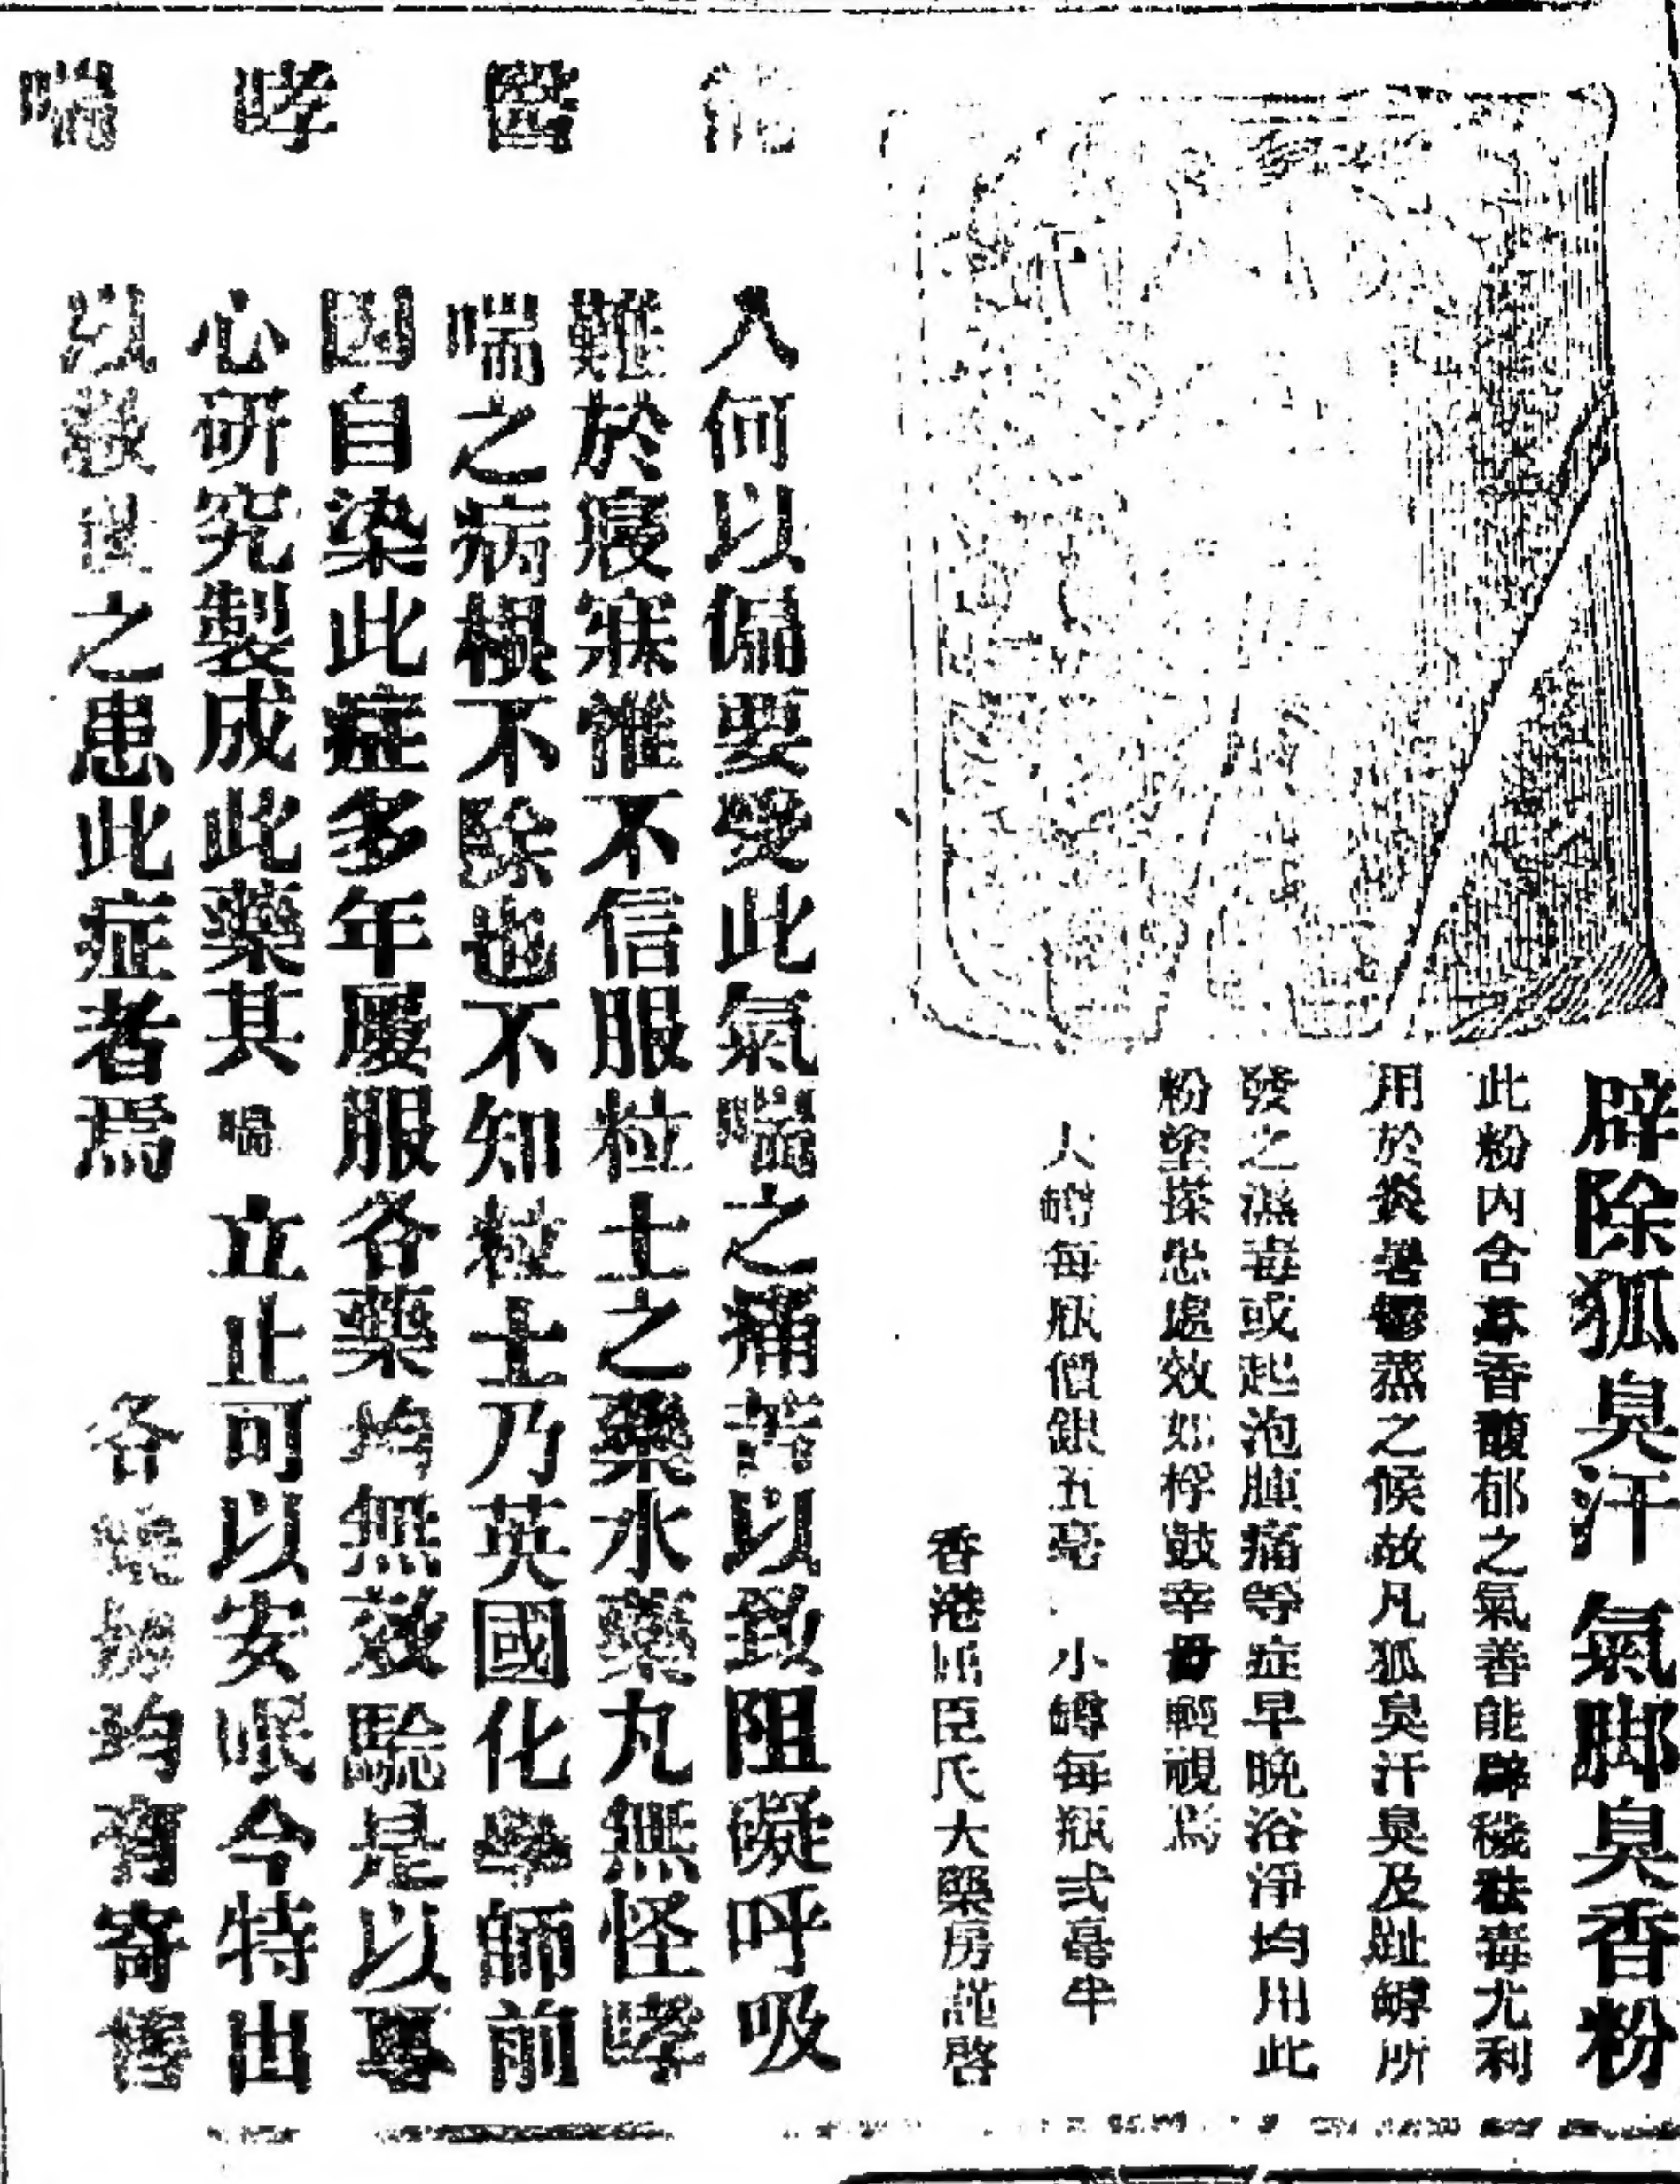 辟除狐臭汗氣脚臭香粉
此粉內含專香馥郁之氣善能辟穢祛毒尤利
用於炎暑鬱蒸之候故凡狐臭汗臭及趾罅所
發之濕毒或起泡腫痛等症早晚浴淨均用此
粉塗搽患處效如桴鼓幸毋輕視焉
大罇每瓶價銀五毫 小罇每瓶式毫半
香港屈臣氏大藥房謹啓
能醫哮喘
人何以偏要受此氣喘之痛苦以致阻礙呼吸
難於寢寐惟不信服粒士之藥水藥丸無怪哮
喘之病根不除也不知粒士乃英國化學師前
因自染此症多年屢服各藥均無效驗是以專
心研究製成此藥其喘立止可以安眠今特出
以救世之患此症者焉
各藥房均有寄售